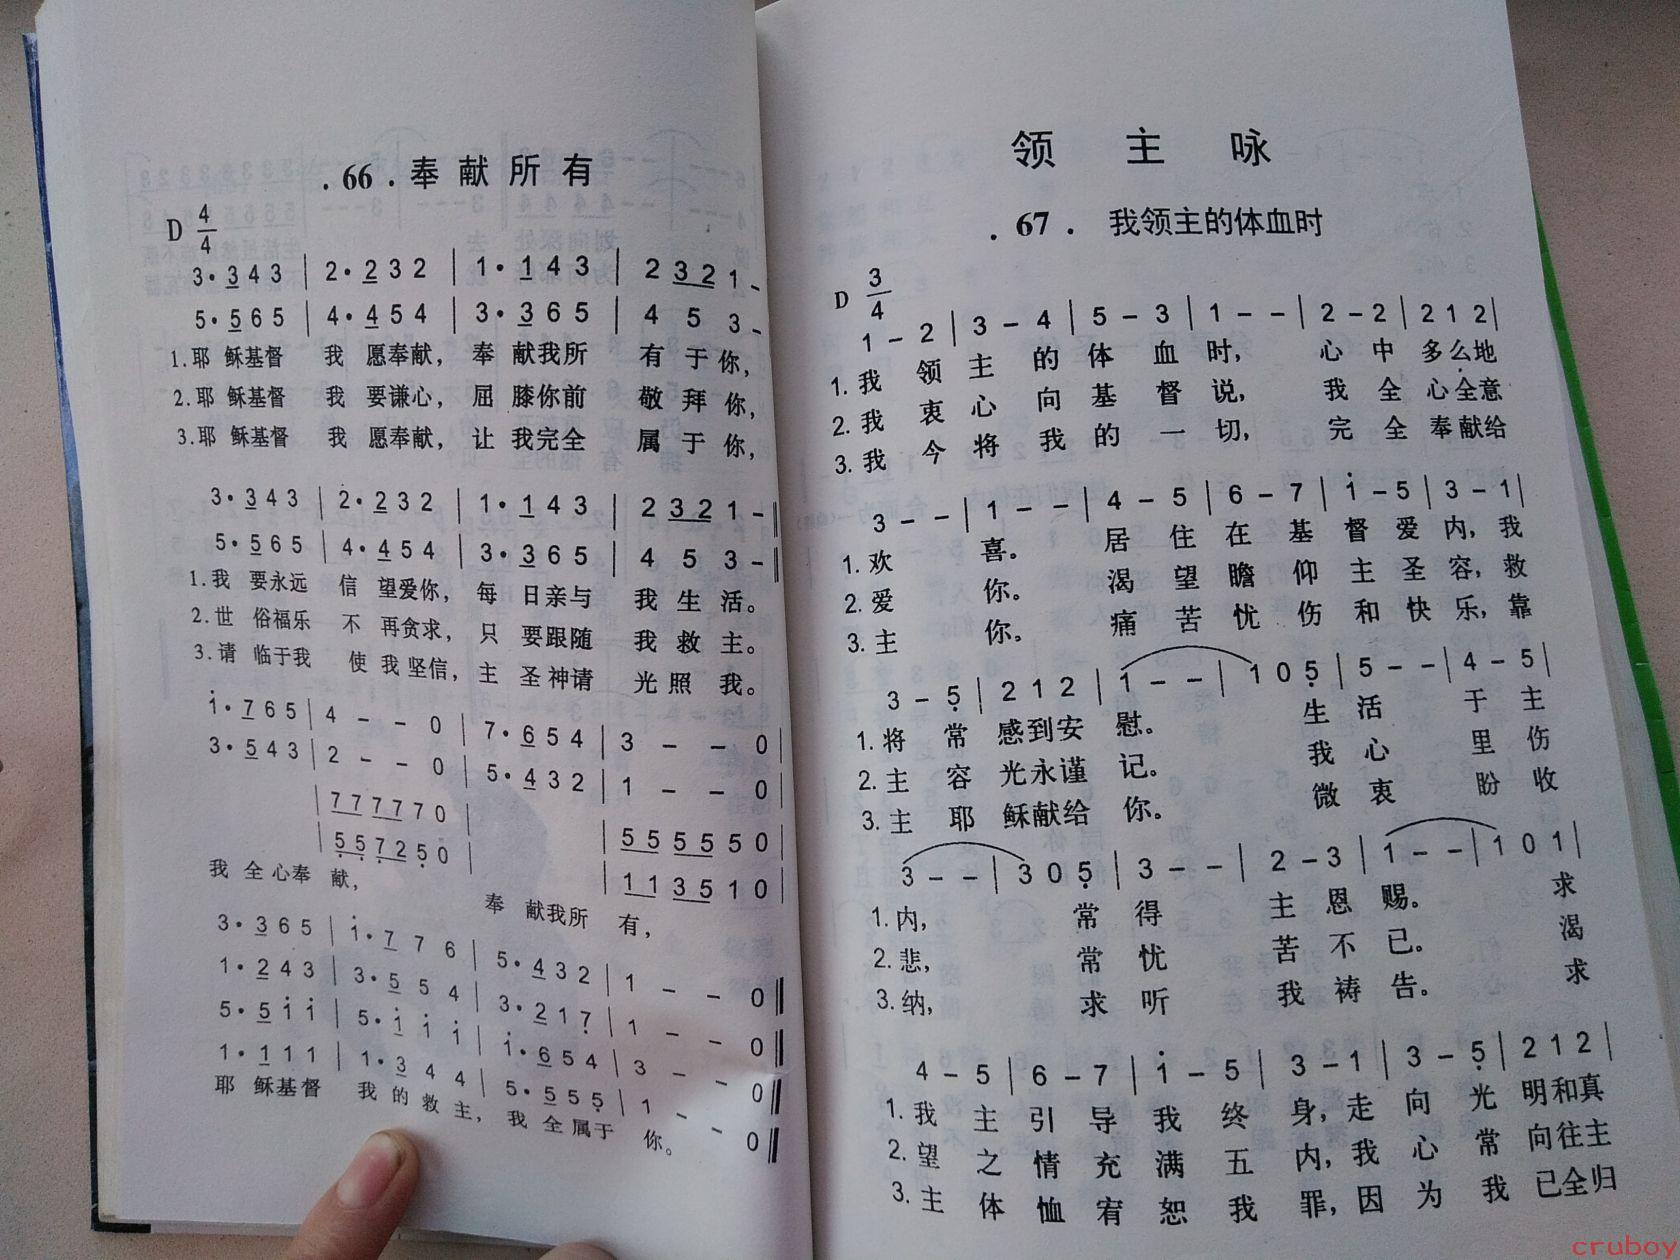 .66.奉献所有
D 4/4
3·343 | 2·232 | 1·143 | 2 321-
5·565 | 4·454 | 3·365 | 4 5 3-
1.耶 稣基督 我 愿奉献， 奉 献我所 有 于 你，
2.耶 稣基督 我 要谦心， 屈 膝你前 敬 拜 你，
3.耶 稣基督 我 愿奉献， 让 我完全 属 于 你，
3·343 | 2·232 | 1·143 | 2 321-‖
5·565 | 4·454 | 3·365 | 4 5 3-‖
1.我 要永远 信 望爱你， 每 日亲与 我 生 活。
2.世 俗福乐 不 再贪求， 只 要跟随 我 救 主。
3.请 临于我 使 我坚信， 主 圣神请 光 照 我。
i·765 | 4 - - 0 | 7·654 | 3 - - 0 |
3·543 | 2 - - 0 | 5·432 | 1 - - 0 |
| 777770 | | 555550 |
| 557250 | | 113510 |
我 全心奉 献， 奉 献我所 有，
3·365 | i·776 | 5·432 | 1 - - 0‖
1·243 | 3·554 | 3·217 | 1 - - 0‖
5·5ii | 5·iii | i·654 | 3 - - 0‖
1·111 | 1·344 | 5·555 | 1 - - 0‖
耶 稣基督 我 的救主， 我 全属于 你。
领 主 咏
.67. 我领主的体血时
D 3/4
1 - 2 | 3 - 4 | 5 - 3 | 1 - - | 2 - 2 | 2 1 2 |
1.我 领 主 的 体 血 时， 心 中 多么地
2.我 衷 心 向 基 督 说， 我 全 心全意
3.我 今 将 我 的 一 切， 完 全 奉献给
3 - - | 1 - - | 4 - 5 | 6 - 7 | i - 5 | 3 - 1 |
1.欢 喜。 居 住 在 基 督 爱 内，我
2.爱 你。 渴 望 瞻 仰 主 圣 容，救
3.主 你。 痛 苦 忧 伤 和 快 乐，靠
3 - 5 | 2 1 2 | 1 - - | 1 0 5 | 5 - - | 4 - 5 |
1.将 常 感到安 慰。 生 活 于 主
2.主 容 光永谨 记。 我 心 里 伤
3.主 耶 稣献给 你。 微 衷 盼 收
3 - - | 3 0 5 | 3 - - | 2 - 3 | 1 - - | 1 0 1 |
1.内， 常 得 主 恩 赐。 求
2.悲， 常 忧 苦 不 已。 渴
3.纳， 求 听 我 祷 告。 求
4 - 5 | 6 - 7 | i - 5 | 3 - 1 | 3 - 5 | 2 1 2 |
1.我 主 引 导 我 终 身，走 向 光 明和真
2.望 之 情 充 满 五 内，我 心 常 向往主
3.主 体 恤 宥 恕 我 罪，因 为 我 已全归
cruboy